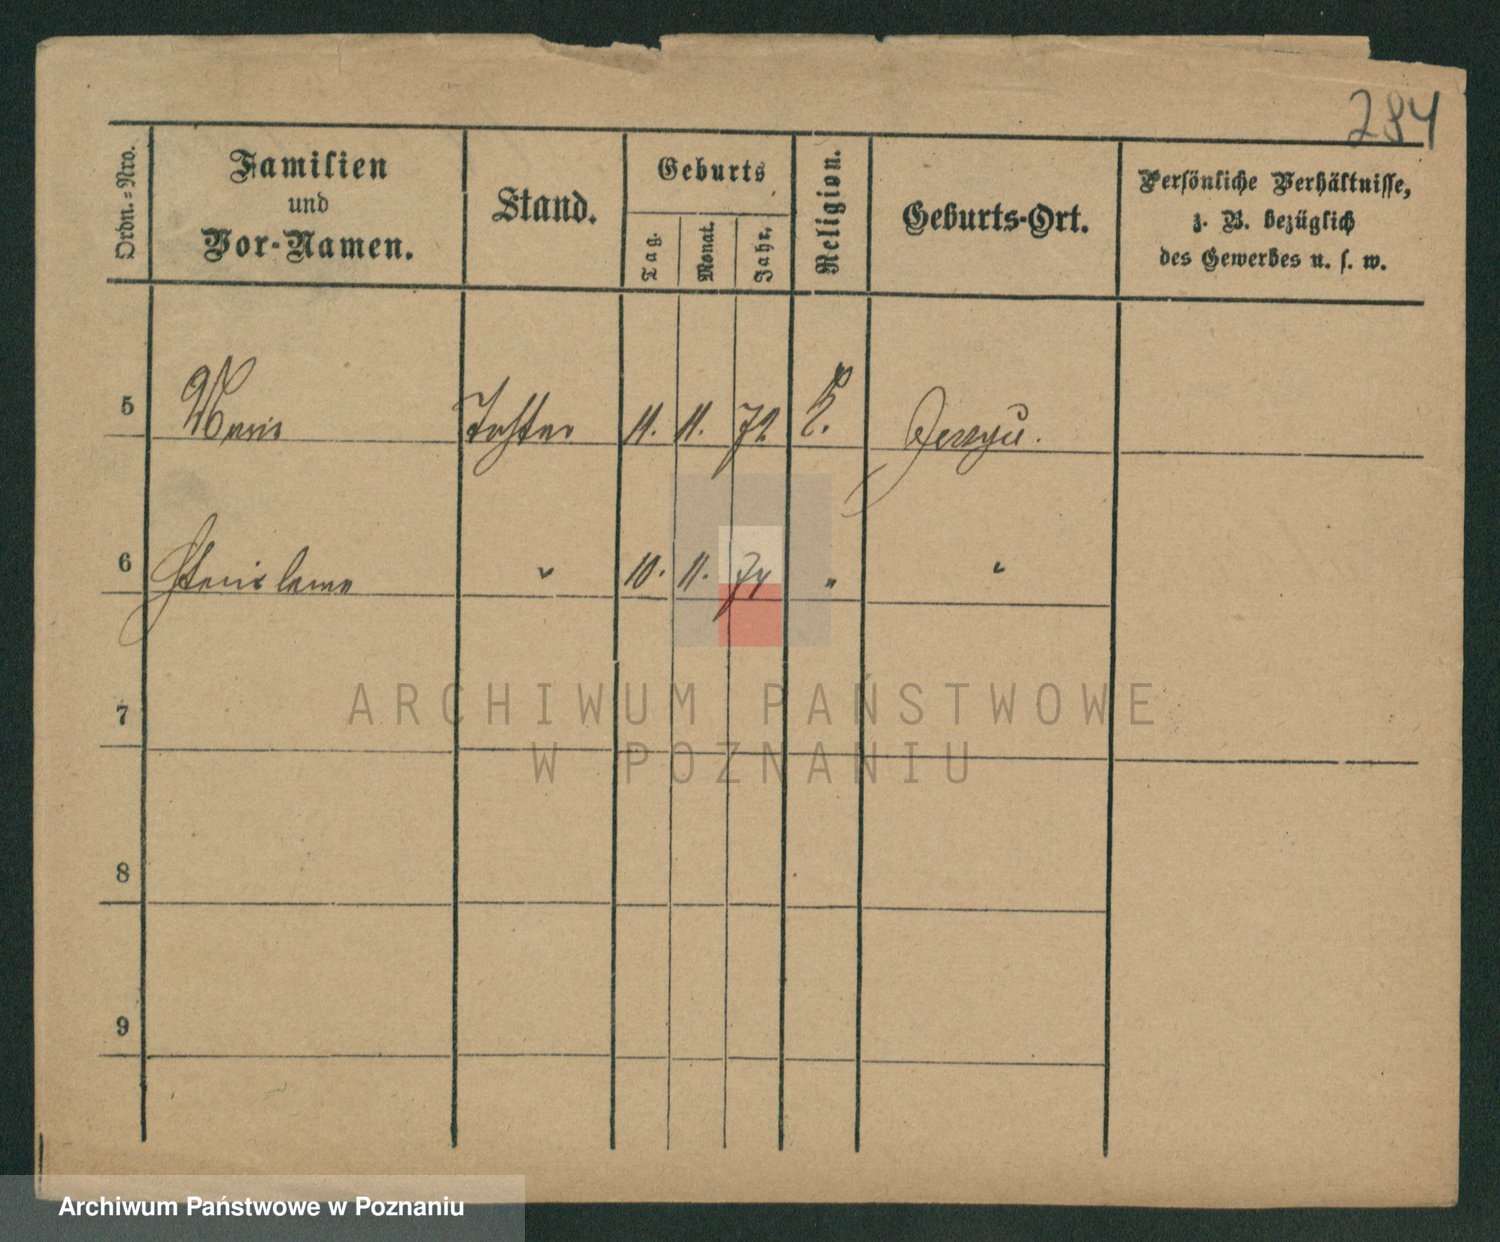 284
Ordn.-Nro.
Familien
und
Vor-Namen.
Stand.
Geburts
Tag.
Monat.
Jahr.
Religion.
Geburts-Ort.
Persönliche Verhältnisse,
z. B. bezüglich
des Gewerbes u. s. w.
5 Marie Tochter 11. 11. 72 K.
6 Stanislawa " 10. 11. 74 " "
7
8
9
ARCHIWUM PAŃSTWOWE
W POZNANIU
Archiwum Państwowe w Poznaniu